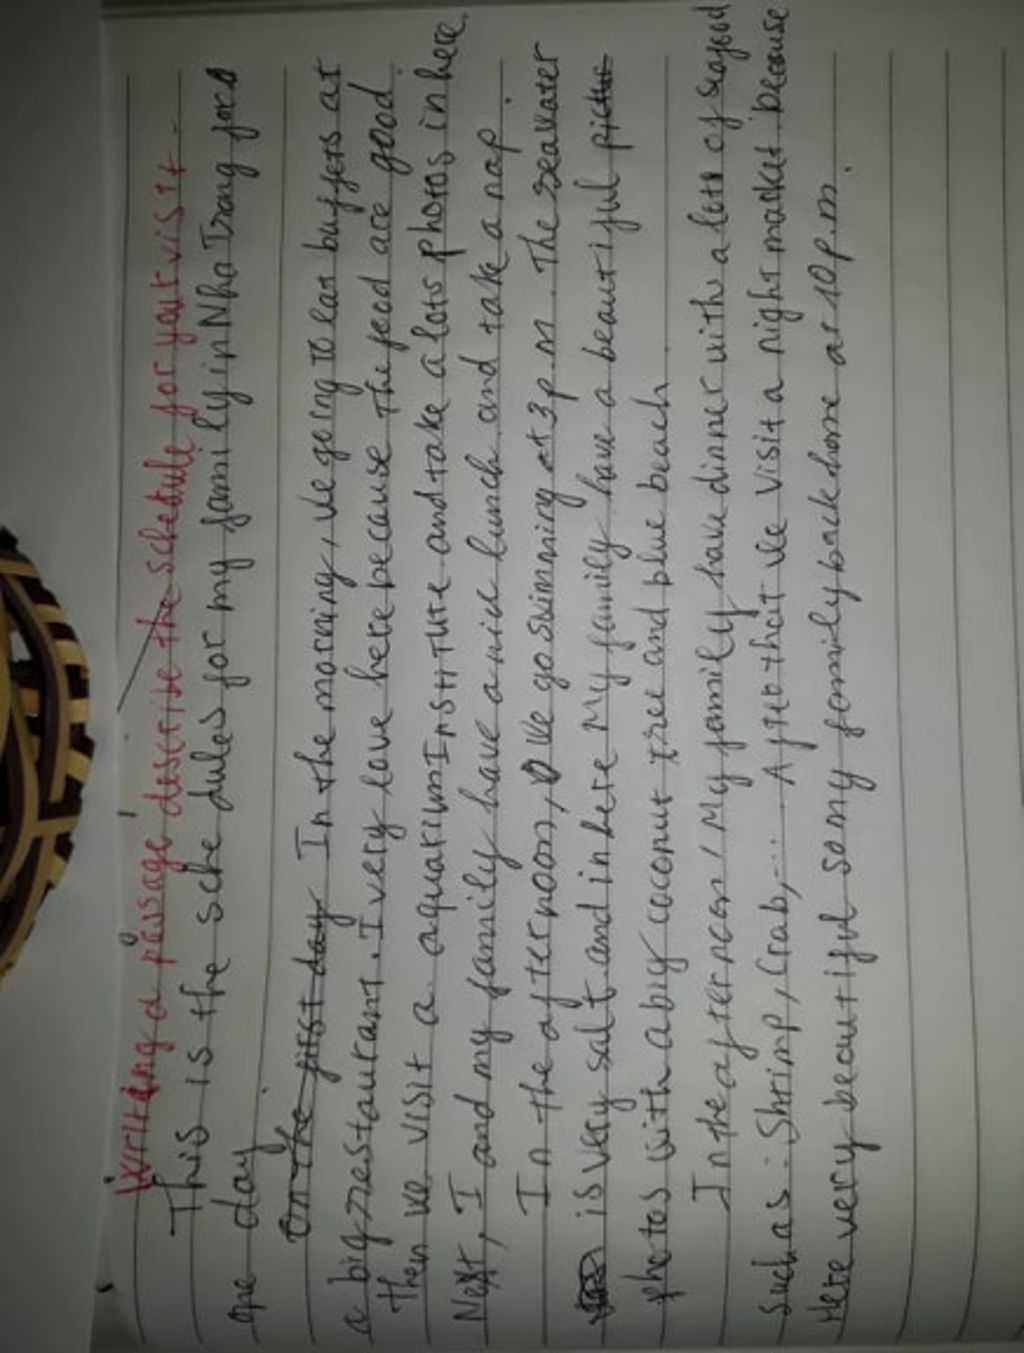 Writing a passage describe the schedule for your visit.
This is the schedules for my family in Nha Trang for
one day
On the first day In the morning, we going to eat buffets at
a big restaurant. I very love here because the food are good.
Then we visit a aquarium Institute and take a lots photos in here.
Next, I and my family have a nice lunch and take a nap.
In the afternoon, we go swimming at 3 p.m. The seawater
is very salt and in here My family have a beautiful
photos with a big coconut tree and blue beach.
In the afternoon, My family have dinner with a lots of seafood
such as: Shrimp, Crab,... After that we visit a night market because
Here very beautiful so my family back home at 10 p.m.